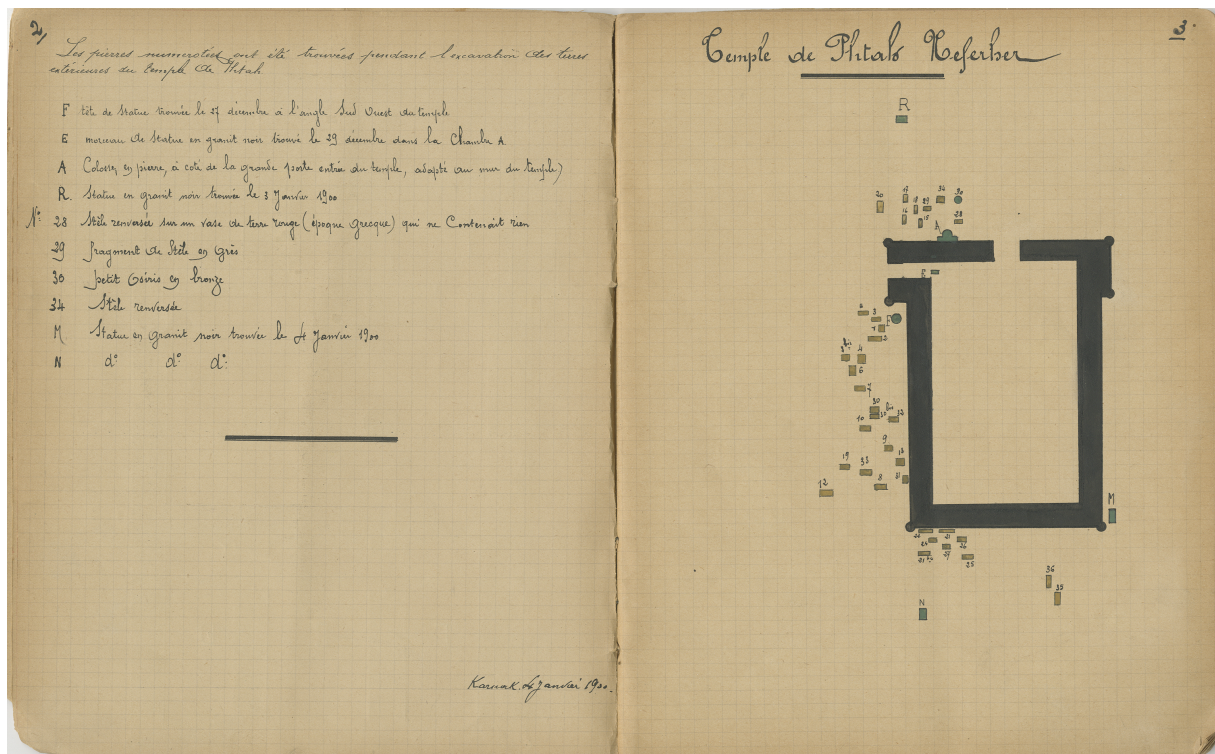 2,
Les pierres numerotées ont été trouvées pendant l'excavation des terres
extérieures du temple de Phtah
F tête de Statue trouvée le 27 décembre à l'angle Sud Ouest du temple
E morceau de Statue en granit noir trouvé le 29 décembre dans la Chambre A
A Colosse, en pierre, à coté de la grande porte entrée du temple, adapté au mur du temple)
R. Statue en granit noir trouvée le 3 Janvier 1900
N° 28 Stèle renversée sur un vase de terre rouge (époque grecque) qui ne Contenait rien
29 fragment de Stèle en grès
30 petit Osiris en bronze
34 Stèle renversée
M. Statue en granit noir trouvée le 4 Janvier 1900
N d° d° d°
Karnak 4 Janvier 1900.
3
Temple de Phtah Neferher
R
20 17 18 29 34 30
16 15 28
A
E
6 3 F
1
2
4
6
7
30
10 32
9
19 33 13
12 8
M
22 21
26
27
25
36
35
N